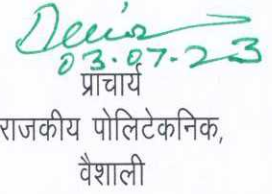 03.07.23
प्राचार्य
राजकीय पोलिटेकनिक,
वैशाली